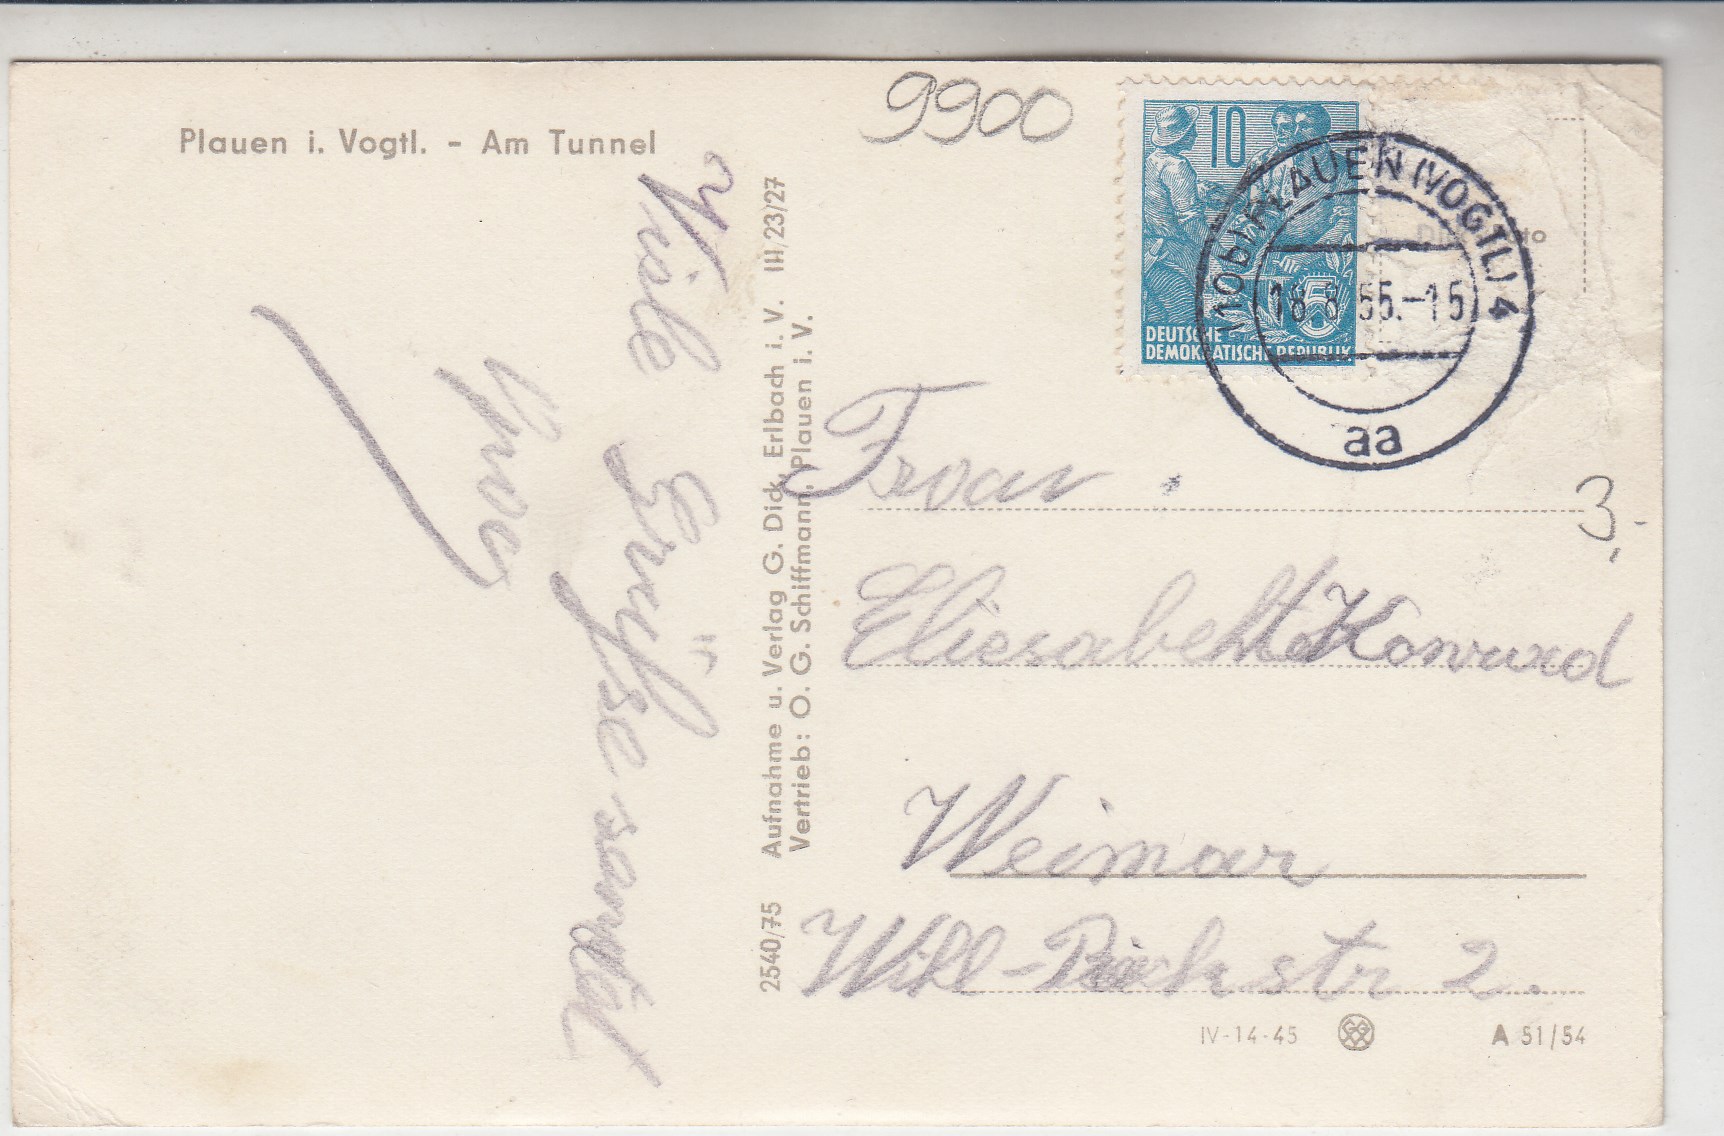 Plauen i. Vogtl. - Am Tunnel
9900
10
5
DEUTSCHE
DEMOKRATISCHE REPUBLIK
PLAUEN (VOGTL) 4
55.-15
aa
Viele
Grüße sendet
Aufnahme u. Verlag G. Dick, Erlbach i. V. IH/23/27
Vertrieb: O. G. Schiffmann, Plauen i. V.
2540/75
Frau
3,-
Elisabeth Konrad
Weimar
Str 2.
IV-14-45
A 51/54